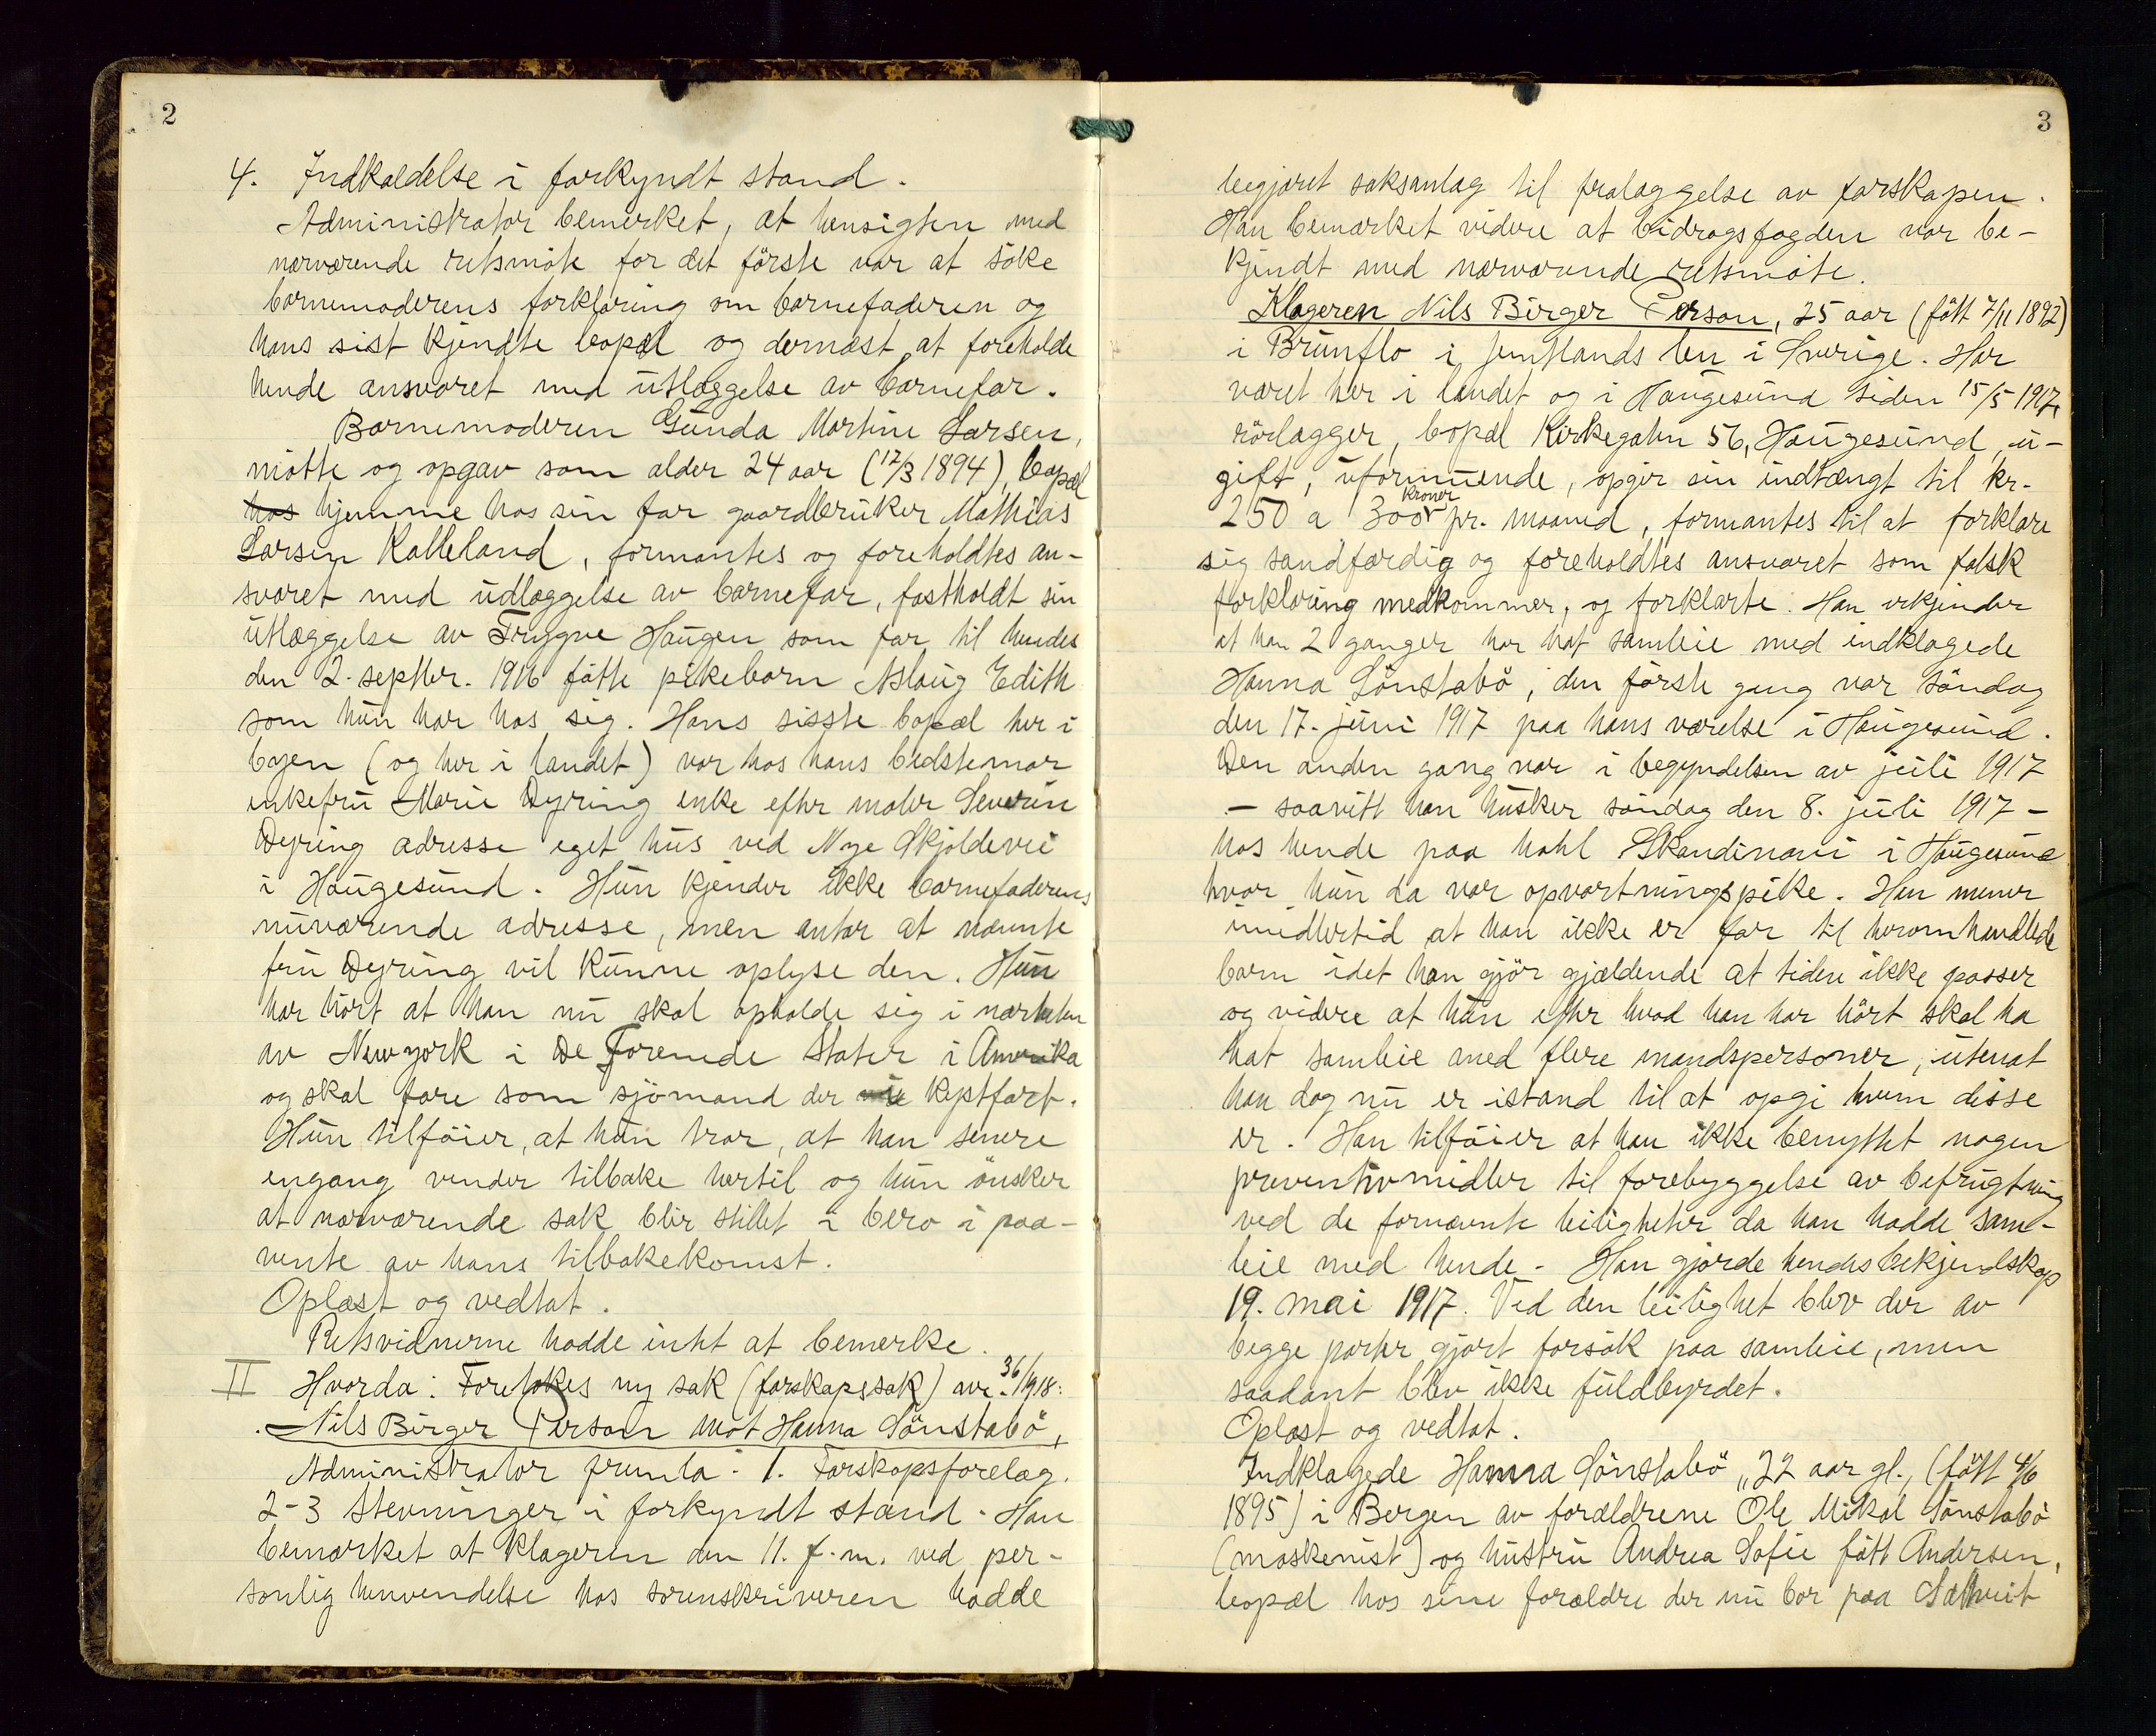 2
4. Indkaldelse i forkyndt stand.
Administrator bemerket, at hensigten med
nærværende retsmöte for det förste var at söke
barnemoderens forklaring om barnefaderen og
hans sist kjendte bopæl og dernæst at foreholde
hende ansvaret med utlæggelse av barnefar.
Barnemoderen Gunda Martine Larsen,
mötte og opgav som alder 24 aar (12/3 1894), bopæl
hos hjemme hos sin far gaardbruker Mathias
Larsen Kalleland, formantes og foreholdtes an-
svaret med udlæggelse av barnefar, fastholdt sin
utlæggelse av Trygve Haugen som far til hendes
den 2. septbr. 1916 fötte pikebarn Aslaug Edith
som hun har hos sig. Hans sisste bopæl her i
byen (og her i landet) var hos hans bedstemor
enkefru Marie Dyring enke efter maler Severin
Dyring adresse eget hus ved Nye Skjoldevei
i Haugesund. Hun kjender ikke barnefaderens
nuværende adresse, men antar at nævnte
fru Dyring vil kunne oplyse den. Hun
har hört at han nu skal opholde sig i nærheten
av New york i De Forenede Stater i Amerika
og skal fare som sjömand der kystfart.
Hun tilföier, at hun tror, at han senere
engang vender tilbake hertil og hun önsker
at nærværende sak blir stillet i bero i paa-
vente av hans tilbakekomst.
Oplæst og vedtat.
Retsvidnerne hadde intet at bemerke.
II Hvorda: Foretokes ny sak (farskapssak) nr. 36/1918:
Nils Birger Person mot Hanna Sönstabö,
Administrator fremla: 1. Farskapsforelæg.
2-3 Stevninger i forkyndt stand. Han
bemærket at klageren den 11. f.m. ved per-
sonlig henvendelse hos sorenskriveren hadde
3
begjæret saksanlæg til fralæggelse av farskapen.
Han bemærket videre at bidragsfogden var be-
kjendt med nærværende retsmöte.
Klageren Nils Birger Person, 25 aar (fött 7/11 1892)
i Brunflo i Jemtlands len i Sverige. Har
været her i landet og i Haugesund siden 15/5 1917,
rörlægger, bopæl Kirkegaten 56, Haugesund, u-
gift, uformuende, opgir sin indtægt til kr.
250 a 300 kroner pr. maaned, formantes til at forklare
sig sandfærdig og foreholdtes ansvaret som falsk
forklaring medkommer, og forklarte: Han erkjender
at han 2 ganger har hat samleie med indklagede
Hanna Sönstabö, den förste gang var söndag
den 17. juni 1917 paa hans værelse i Haugesund.
Den anden gang var i begyndelsen av juli 1917
- saavitt han husker söndag den 8. juli 1917 -
hos hende paa hotel Skandinavi i Haugesund
hvor hun da var opvartningspike. Han mener
imidlertid at han ikke er far til heromhandlede
barn idet han gjör gjældende at tiden ikke passer
og videre at hun efter hvad han har hört skal ha
hat samleie med flere mandspersoner, utenat
han dog nu er istand til at opgi hvem disse
er. Han tilföier at han ikke benyttet nogen
preventivmidler til forebyggelse av befrugtning
ved de fornævnte leiligheter da han hadde sam-
leie med hende - Han gjorde hendes bekjendskap
19. mai 1917. Ved den leilighet blev der av
begge parter gjort forsök paa samleie, men
saadant blev ikke fuldbyrdet.
Oplæst og vedtat.
Indklagede Hanna Sönstabö, 22 aar gl., (fött 4/6
1895) i Bergen av forældrene Ole Mikal Sönstabö
(maskenist) og hustru Andrea Sofie fött Andersen,
bopæl hos sine forældre der nu bor paa Sæthveit